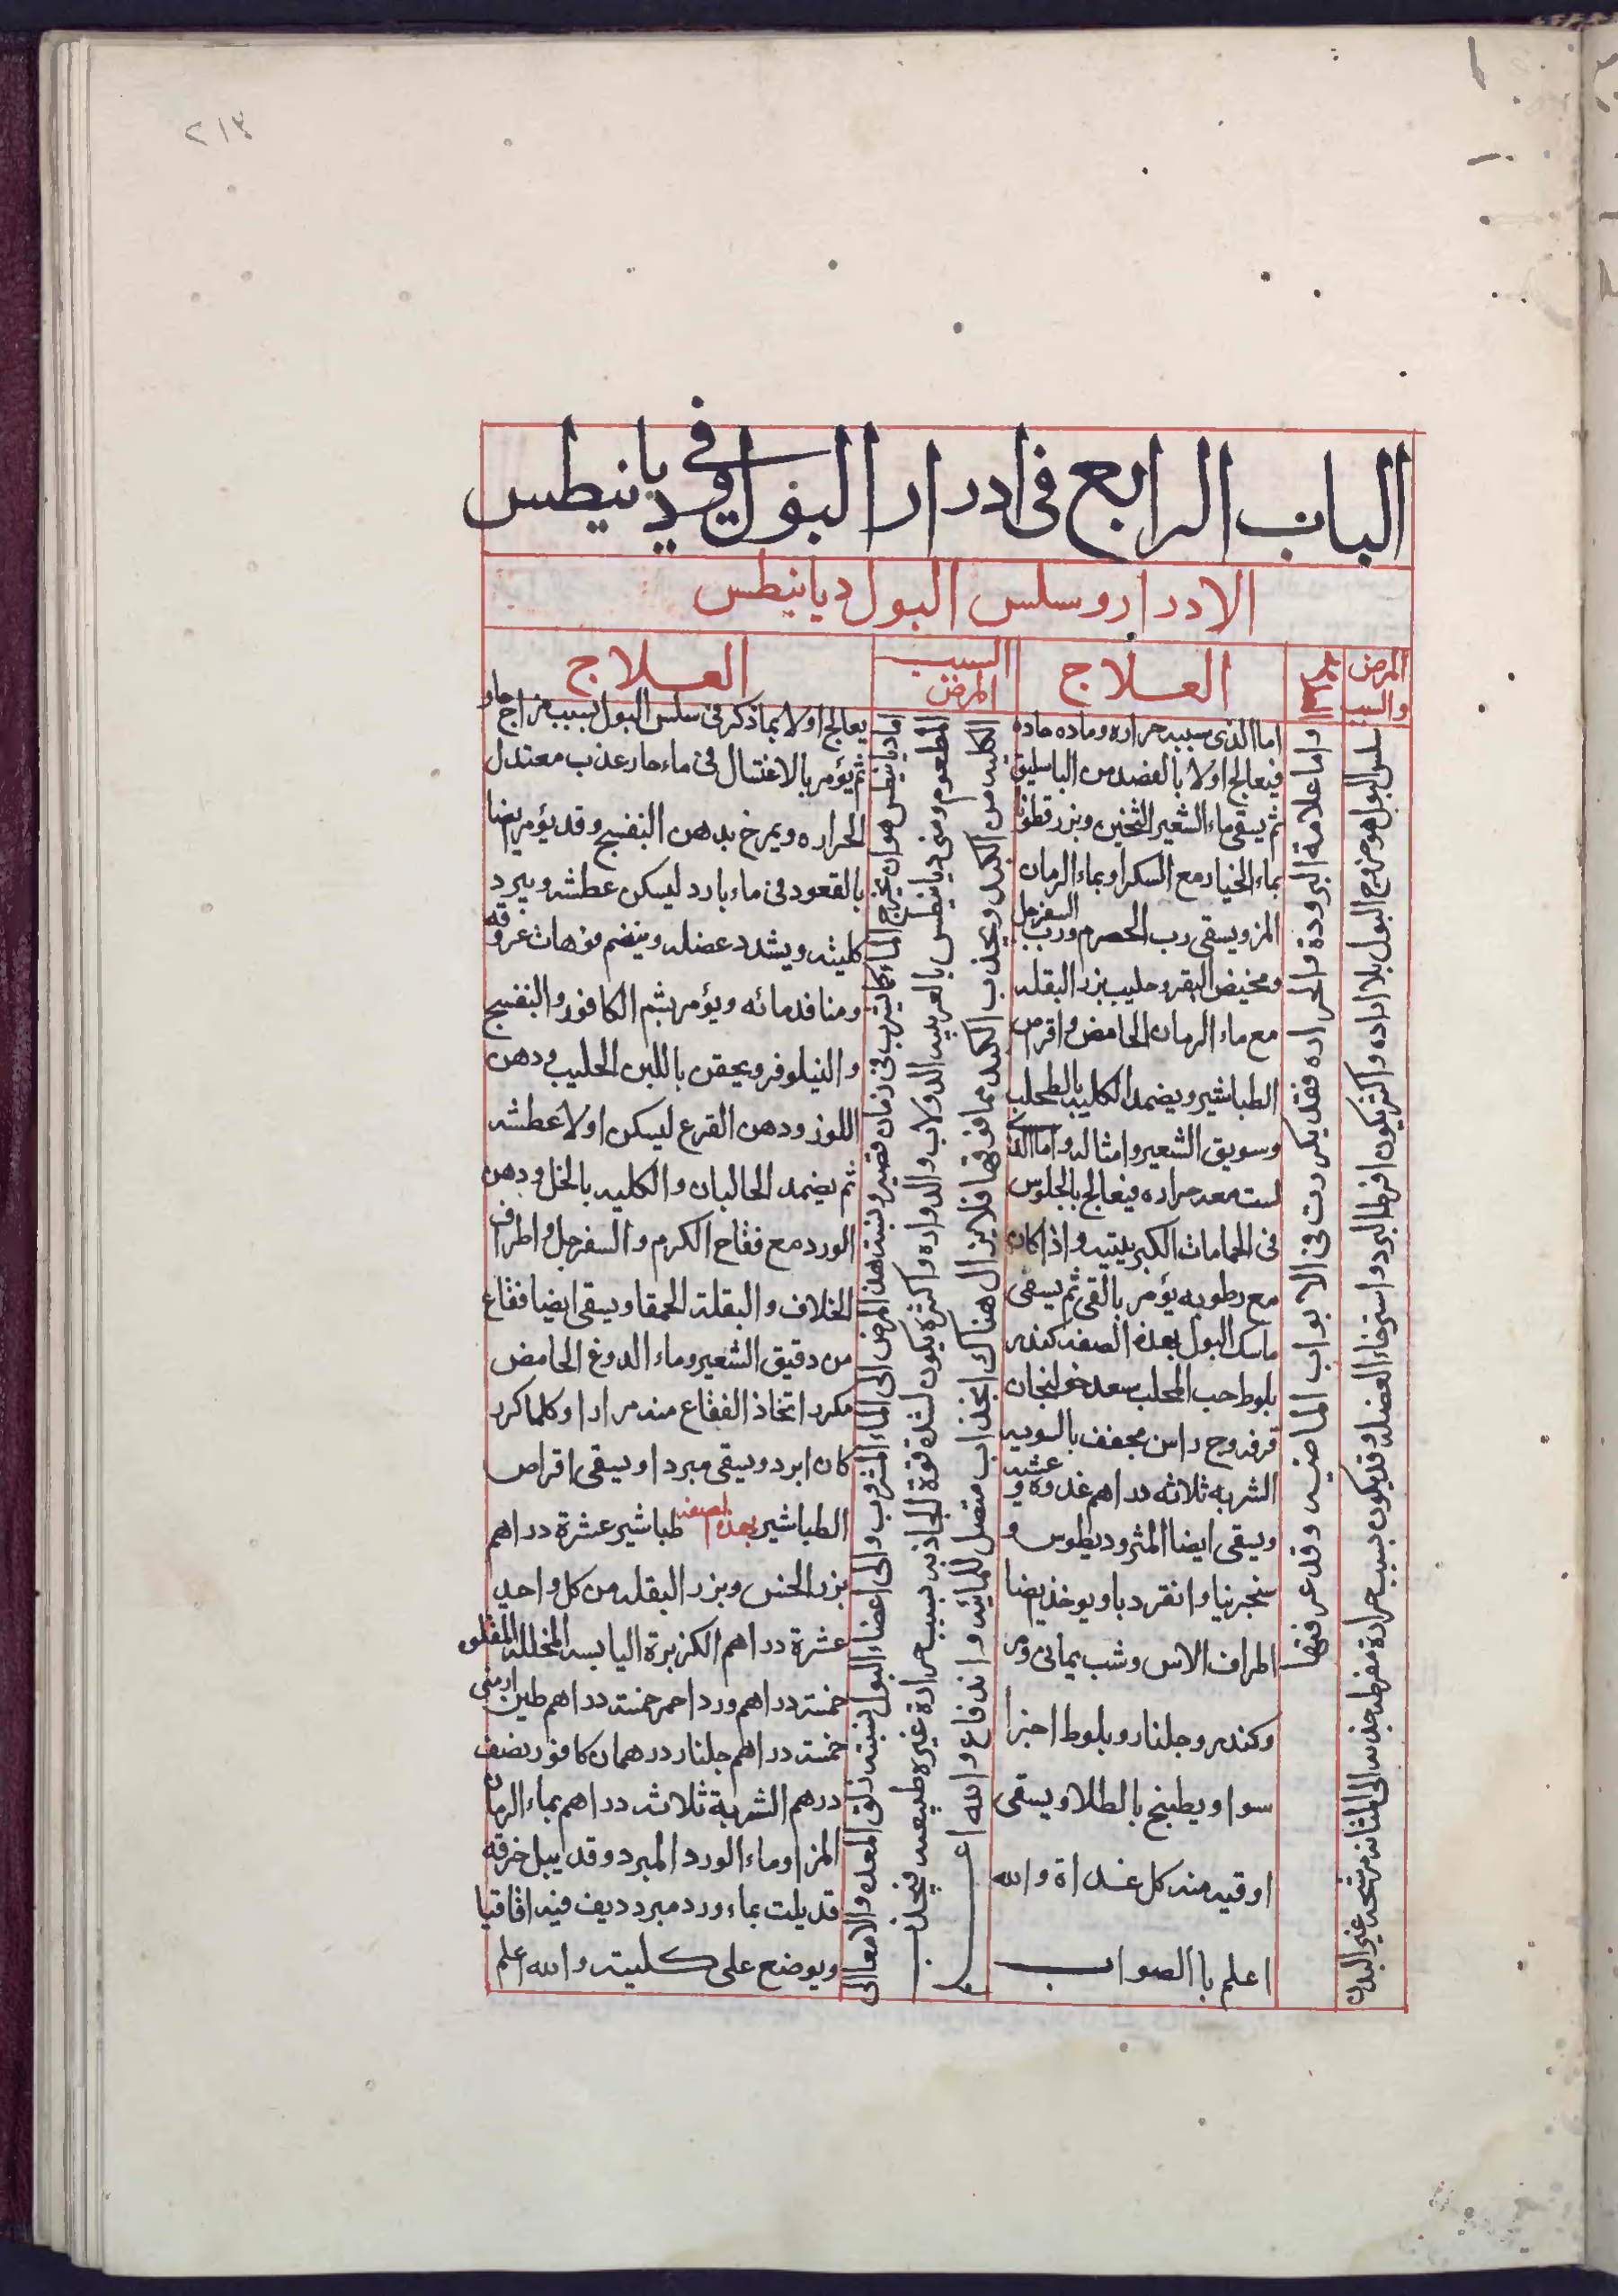 ٢١٣
الباب الرابع فى ادرار البول وفى ديانيطس
الادرار وسلس البول ديانيطس
المرض والسبب
العلاج
السبب المرض
العلاج
سلس البول هو خروج البول بلا اراده واكثر يكون افرط البرد واسترخاء العضله وقد يكون بسبب حرارة مفرطه جذبه الى المثانه مرشحه غير البدن
واما علامة البرودة والحراره فقد تكررت فى الابواب الماضيه وقد عرفتها
اما الذى سببه حراره وماده حاده
فيعالج اولا بالفصد من الباسليق
ثم يسقى ماء الشعير الثخين وبزرقطونا
بماء الخيار مع السكر او بماء الرمان
المز ويسقى رب الحصرم ورب السفرجل
ومخيض البقر وحليب بزر البقله
مع ماء الرمان الحامض واقرص
الطباشير ويضمد الكليه بالطحلب
وسويق الشعير وامثاله واما الذى
ليست معه حراره فيعالج بالجلوس
فى الحمامات الكبريتيه واذا كان
مع رطوبه يؤمر بالقى ثم يسقى
ماسك البول بهذه الصفه كندر
بلوط حب المحلب سعد خولنجان
قرفه وج راسن مجفف بالسويه
الشربه ثلاثه دراهم غدوه وعشيه
ويسقى ايضا المثروديطوس و
سنجرنيا وانقرديا ويوخذ يضا
اطراف الاس وشب يمانى ومر
وكندر وجلنار وبلوط اجزا
سوا ويطبخ بالطلا ويسقى
اوقيه منه كل غداة والله
اعلم باالصواب
اما ديانيطس هو ان يخرج الماء كما يشرب فى زمان قصير ونسبته هذا المرض الى الماء المشروب والى اعضاء البول نسبته زلق المعده والامعا الى
المطعوم ومنى ديانيطس بالعربيه الدولاب والدواره واكثره يكون لشدة قوة الجاذبه بسبب حرارة غيره طبيعيه فيجذب
الكليه من الكبد ويجذب الكبد مما فوقها فلا يزال هناك انجذاب متصل للمائيه واندفاع والله اعلم
يعالج اولا بما ذكر فى سلس البول بسبب مزاج حار
ثم يؤمر بالاغتسال فى ماء حار عذب معتدل
الحراره ويمرخ بدهن البنفسج وقد يؤمر يضا
بالقعود فى ماء بارد ليسكن عطشه ويبرد
كليته ويشدد عضله وينضم فوهات عروقه
ومنافذ مائه ويؤمر بشم الكافور والبنفسج
والنيلوفر ويحقن باللبن الحليب ودهن
اللوز ودهن القرع ليسكن اولا عطشه
ثم يضمد الحالبان والكليه بالخل ودهن
الورد مع فقاح الكرم والسفرجل واطراف
الخلاف والبقلة الحمقا ويسقى ايضا فقاع
من دقيق الشعير وماء الدوغ الحامض
مكرر اتخاذ الفقاع منه مرارا وكلما كرر
كان ابرد ويسقى مبردا ويسقى اقراص
الطباشير بهذه الصفه طباشير عشرة دراهم
بزر الخس وبزر البقله من كل واحد
عشرة دراهم الكزبرة اليابسه المخلله المقلوه
خمسه دراهم ورد احمر خمسه دراهم طين ارمنى
خمسه دراهم جلنار درهمان كافور نصف
درهم الشربة ثلاثه دراهم بماء الرمان
المز او ماء الورد المبرد وقد يبل خرقه
قد يلت بماء ورد مبرد ديف فيه اقاقيا
ويوضع على كليته والله اعلم